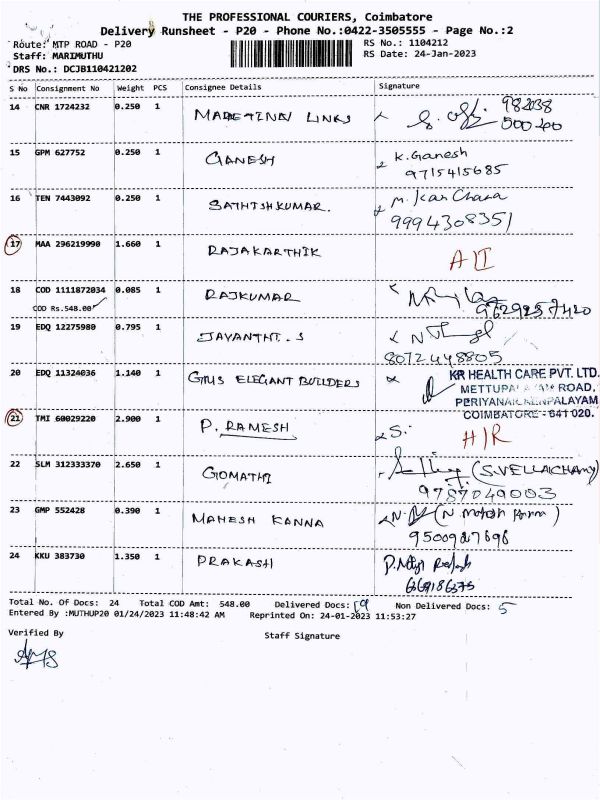 THE PROFESSIONAL COURIERS, Coimbatore
Delivery Runsheet - P20 - Phone No.:0422-3505555 - Page No.:2
Route: MTP ROAD - P20
RS No.: 1104212
Staff: MARIMUTHU
RS Date: 24-Jan-2023
DRS No.: DCJB110421202
S No Consignment No Weight PCS Consignee Details Signature
14 CNR 1724232 0.250 1 LINKS 98203B
000200
15 GPM 627752 0.250 1 GANESH K. Ganesh
9715415685
16 TEN 7443092 0.250 1 SATHISHKUMAR.
9994308351
17 MAA 296219990 1.660 1 RAJAKARTHIK
18 COD 1111872034 0.085 1 RAJKUMAR
COD Rs.548.00
19 EDQ 12275980 0.795 1 JAYANTHI. S
8072448805
20 EDQ 11324036 1.140 1 ELEGANT BUILDERS KR HEALTH CARE PVT. LTD.
METTUPALAYAM ROAD,
PERIYANAICKENPALAYAM
COIMBATORE - 641 020.
21 TMI 60029220 2.900 1 P. RAMESH S.
22 SLM 312333370 2.650 1 GOMATHI (S.VELLAICHAMY)
9787049003
23 GMP 552428 0.390 1 MAHESH KANNA
24 KKU 383730 1.350 1 PRAKASH
Total No. Of Docs: 24 Total COD Amt: 548.00 Delivered Docs: 19 Non Delivered Docs: 5
Entered By :MUTHUP20 01/24/2023 11:48:42 AM Reprinted On: 24-01-2023 11:53:27
Verified By
Staff Signature